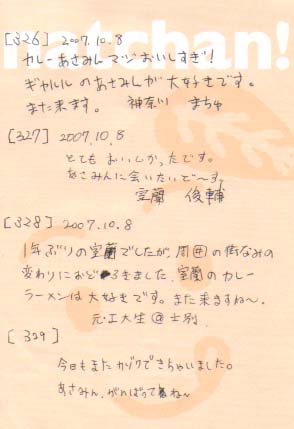 hatchan!
[326] 2007.10.8
カレーあさみんマジおいしすぎ!
ギャルルのあさみんが大好きです。
また来ます。 神奈川 まちゅ
[327] 2007.10.8
とてもおいしかったです。
あさみんに会いたいで〜す。
室蘭 俊輔
[328] 2007.10.8
1年ぶりの室蘭でしたが、周辺の街なみの
変わりにおどろきました。室蘭のカレー
ラーメンは大好きです。また来ますね〜.
元・工大生@士別
[329]
今日もまたカゾクできちゃいました。
あさみん、がんばってね〜